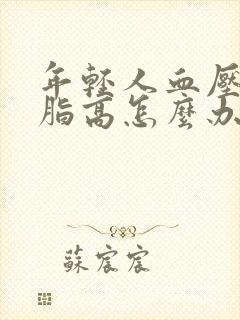 年輕人血壓
脂高怎麼办
蘇宸宸